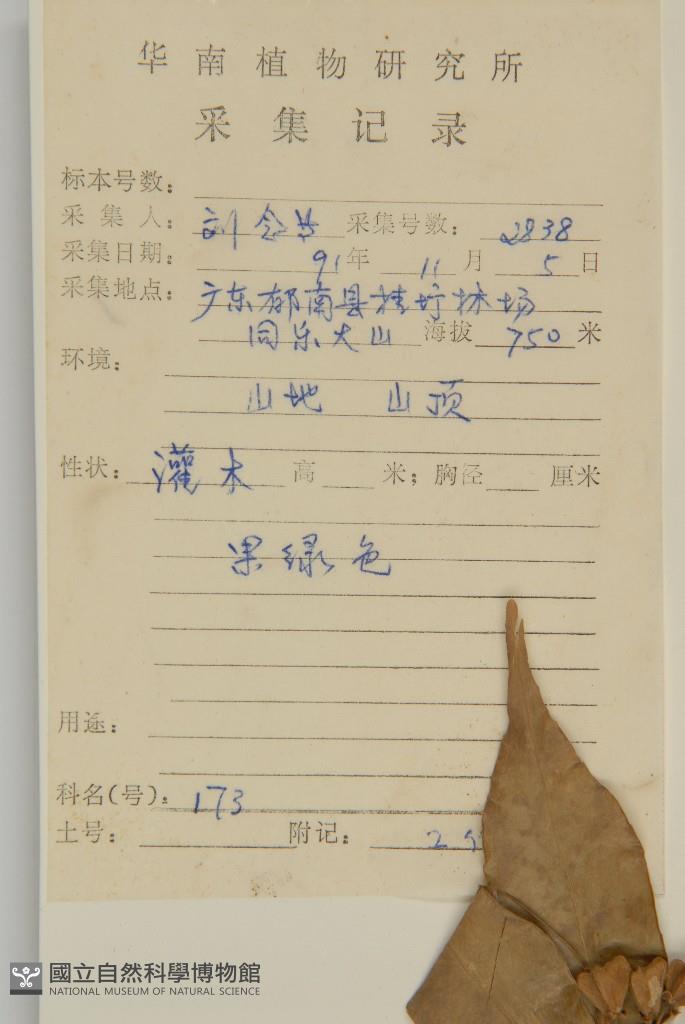 华南植物研究所
采集记录
标本号数：
采集人：刘念 采集号数：2838
采集日期：91年 11月 5日
采集地点：广东郁南县桂圩林场
同乐大山 海拔 750 米
环境：
山地 山顶
性状：灌木 高 米；胸径 厘米
果绿色
用途：
科名(号)：173
土号： 附记：
國立自然科學博物館
NATIONAL MUSEUM OF NATURAL SCIENCE